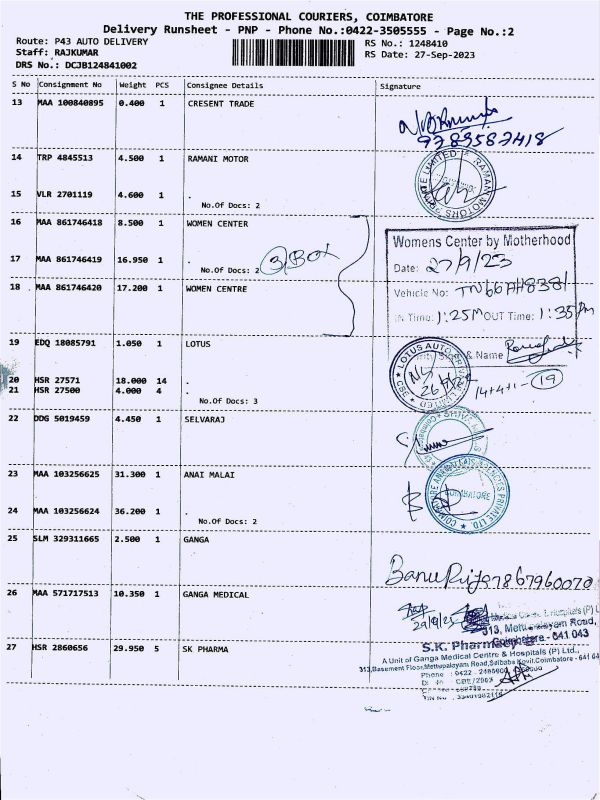 THE PROFESSIONAL COURIERS, COIMBATORE
Delivery Runsheet - PNP - Phone No.:0422-3505555 - Page No.:2
Route: P43 AUTO DELIVERY
Staff: RAJKUMAR
DRS No.: DCJB124841002
RS No.: 1248410
RS Date: 27-Sep-2023
S No Consignment No Weight PCS Consignee Details Signature
13 MAA 100840895 0.400 1 CRESENT TRADE
9789587418
14 TRP 4845513 4.500 1 RAMANI MOTOR
RAMANI MOTORS
15 VLR 2701119 4.600 1 .
No.Of Docs: 2
16 MAA 861746418 8.500 1 WOMEN CENTER
17 MAA 861746419 16.950 1 .
No.Of Docs: 2
3 BOX
18 MAA 861746420 17.200 1 WOMEN CENTRE
Womens Center by Motherhood
Date: 27/9/23
Vehicle No: TN66AH8381
IN Time: 1:25M OUT Time: 1:35 Pm
Sign & Name
19 EDQ 18085791 1.050 1 LOTUS
LOTUS AUTO
LIMITED
CBE
20 HSR 27571 18.000 14 .
21 HSR 27500 4.000 4 .
No.Of Docs: 3
14+4+1- 19
22 DDG 5019459 4.450 1 SELVARAJ
23 MAA 103256625 31.300 1 ANAI MALAI
24 MAA 103256624 36.200 1 .
No.Of Docs: 2
AGENCIES PRIVATE LTD.
COIMBATORE
25 SLM 329311665 2.500 1 GANGA
Banu Priya 7867960070
26 MAA 571717513 10.350 1 GANGA MEDICAL
313, Mettupalayam Road,
Coimbatore - 641 043
27 HSR 2860656 29.950 5 SK PHARMA
S.K. Pharmacy
A Unit of Ganga Medical Centre & Hospitals (P) Ltd.,
313,Basement Floor,Mettupalayam Road,Saibaba Kovil,Coimbatore - 641 04
Phone : 0422 -